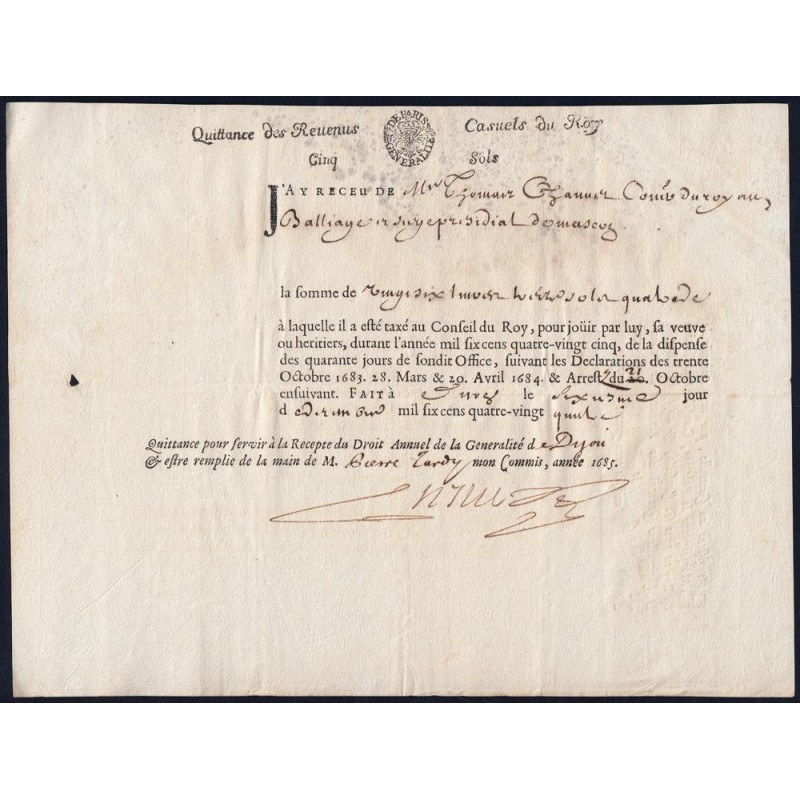 Quittance des Reuenus Casuels du Roy
DE PARIS GENERALITE
Cinq Sols
J'AY RECEU DE Mre Thomas du roy au
Balliage et siege presidial de mascon
la somme de vingt six livres sols quatre d
à laquelle il a esté taxé au Conseil du Roy, pour joüir par luy, sa veuve
ou heritiers, durant l'année mil six cens quatre-vingt cinq, de la dispense
des quarante jours de sondit Office, suivant les Declarations des trente
Octobre 1683. 28. Mars & 29. Avril 1684. & Arrest du 21 Octobre
ensuivant. FAIT à le sixiesme jour
de decembre mil six cens quatre-vingt quatre
Quittance pour servir à la Recepte du Droit Annuel de la Generalité de Dijon
& estre remplie de la main de M. Pierre Tardy mon Commis, année 1685.